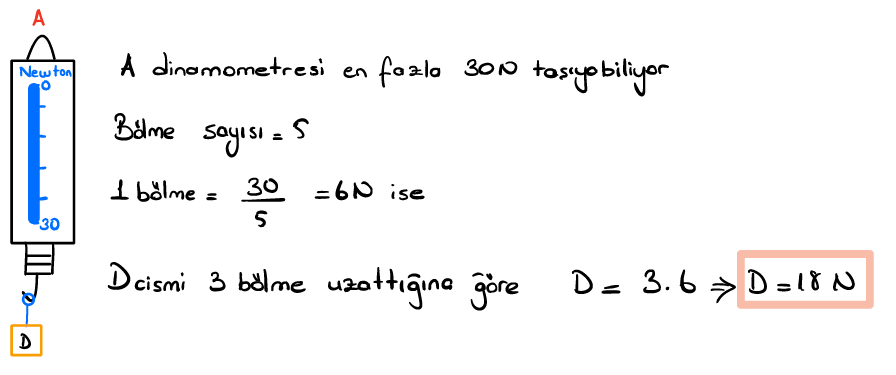 A
Newton
0
30
D
A dinamometresi en fazla 30N taşıyabiliyor
Bölme sayısı = 5
1 bölme = 30/5 = 6N ise
D cismi 3 bölme uzattığına göre D = 3.6 ⇒ D = 18 N